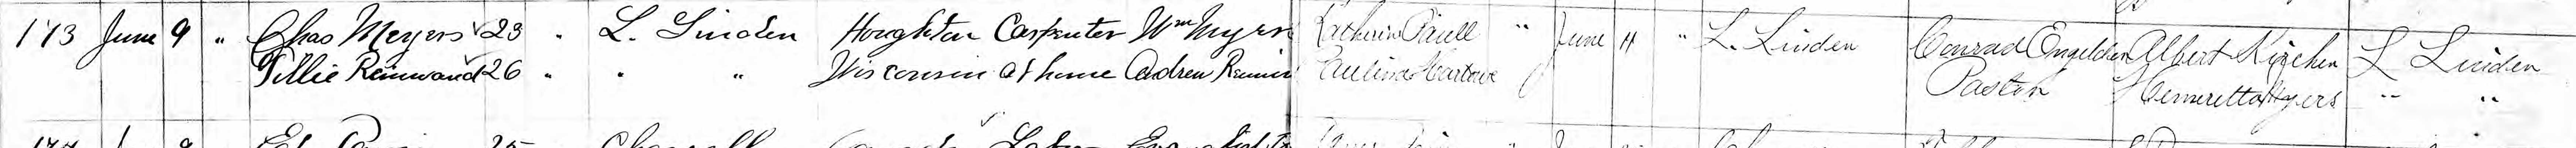 173 June 9 " Chas Meyers 23 " L. Linden Houghton Carpenter Wm Myers Katherin Paull " June 11 " L. Linden Conrad Engelder Albert Kirchen L Linden
Tillie Reinwand 26 " " " Wisconsin at home Andrew Paulina Pastor Henrietta Myers " "
9 25